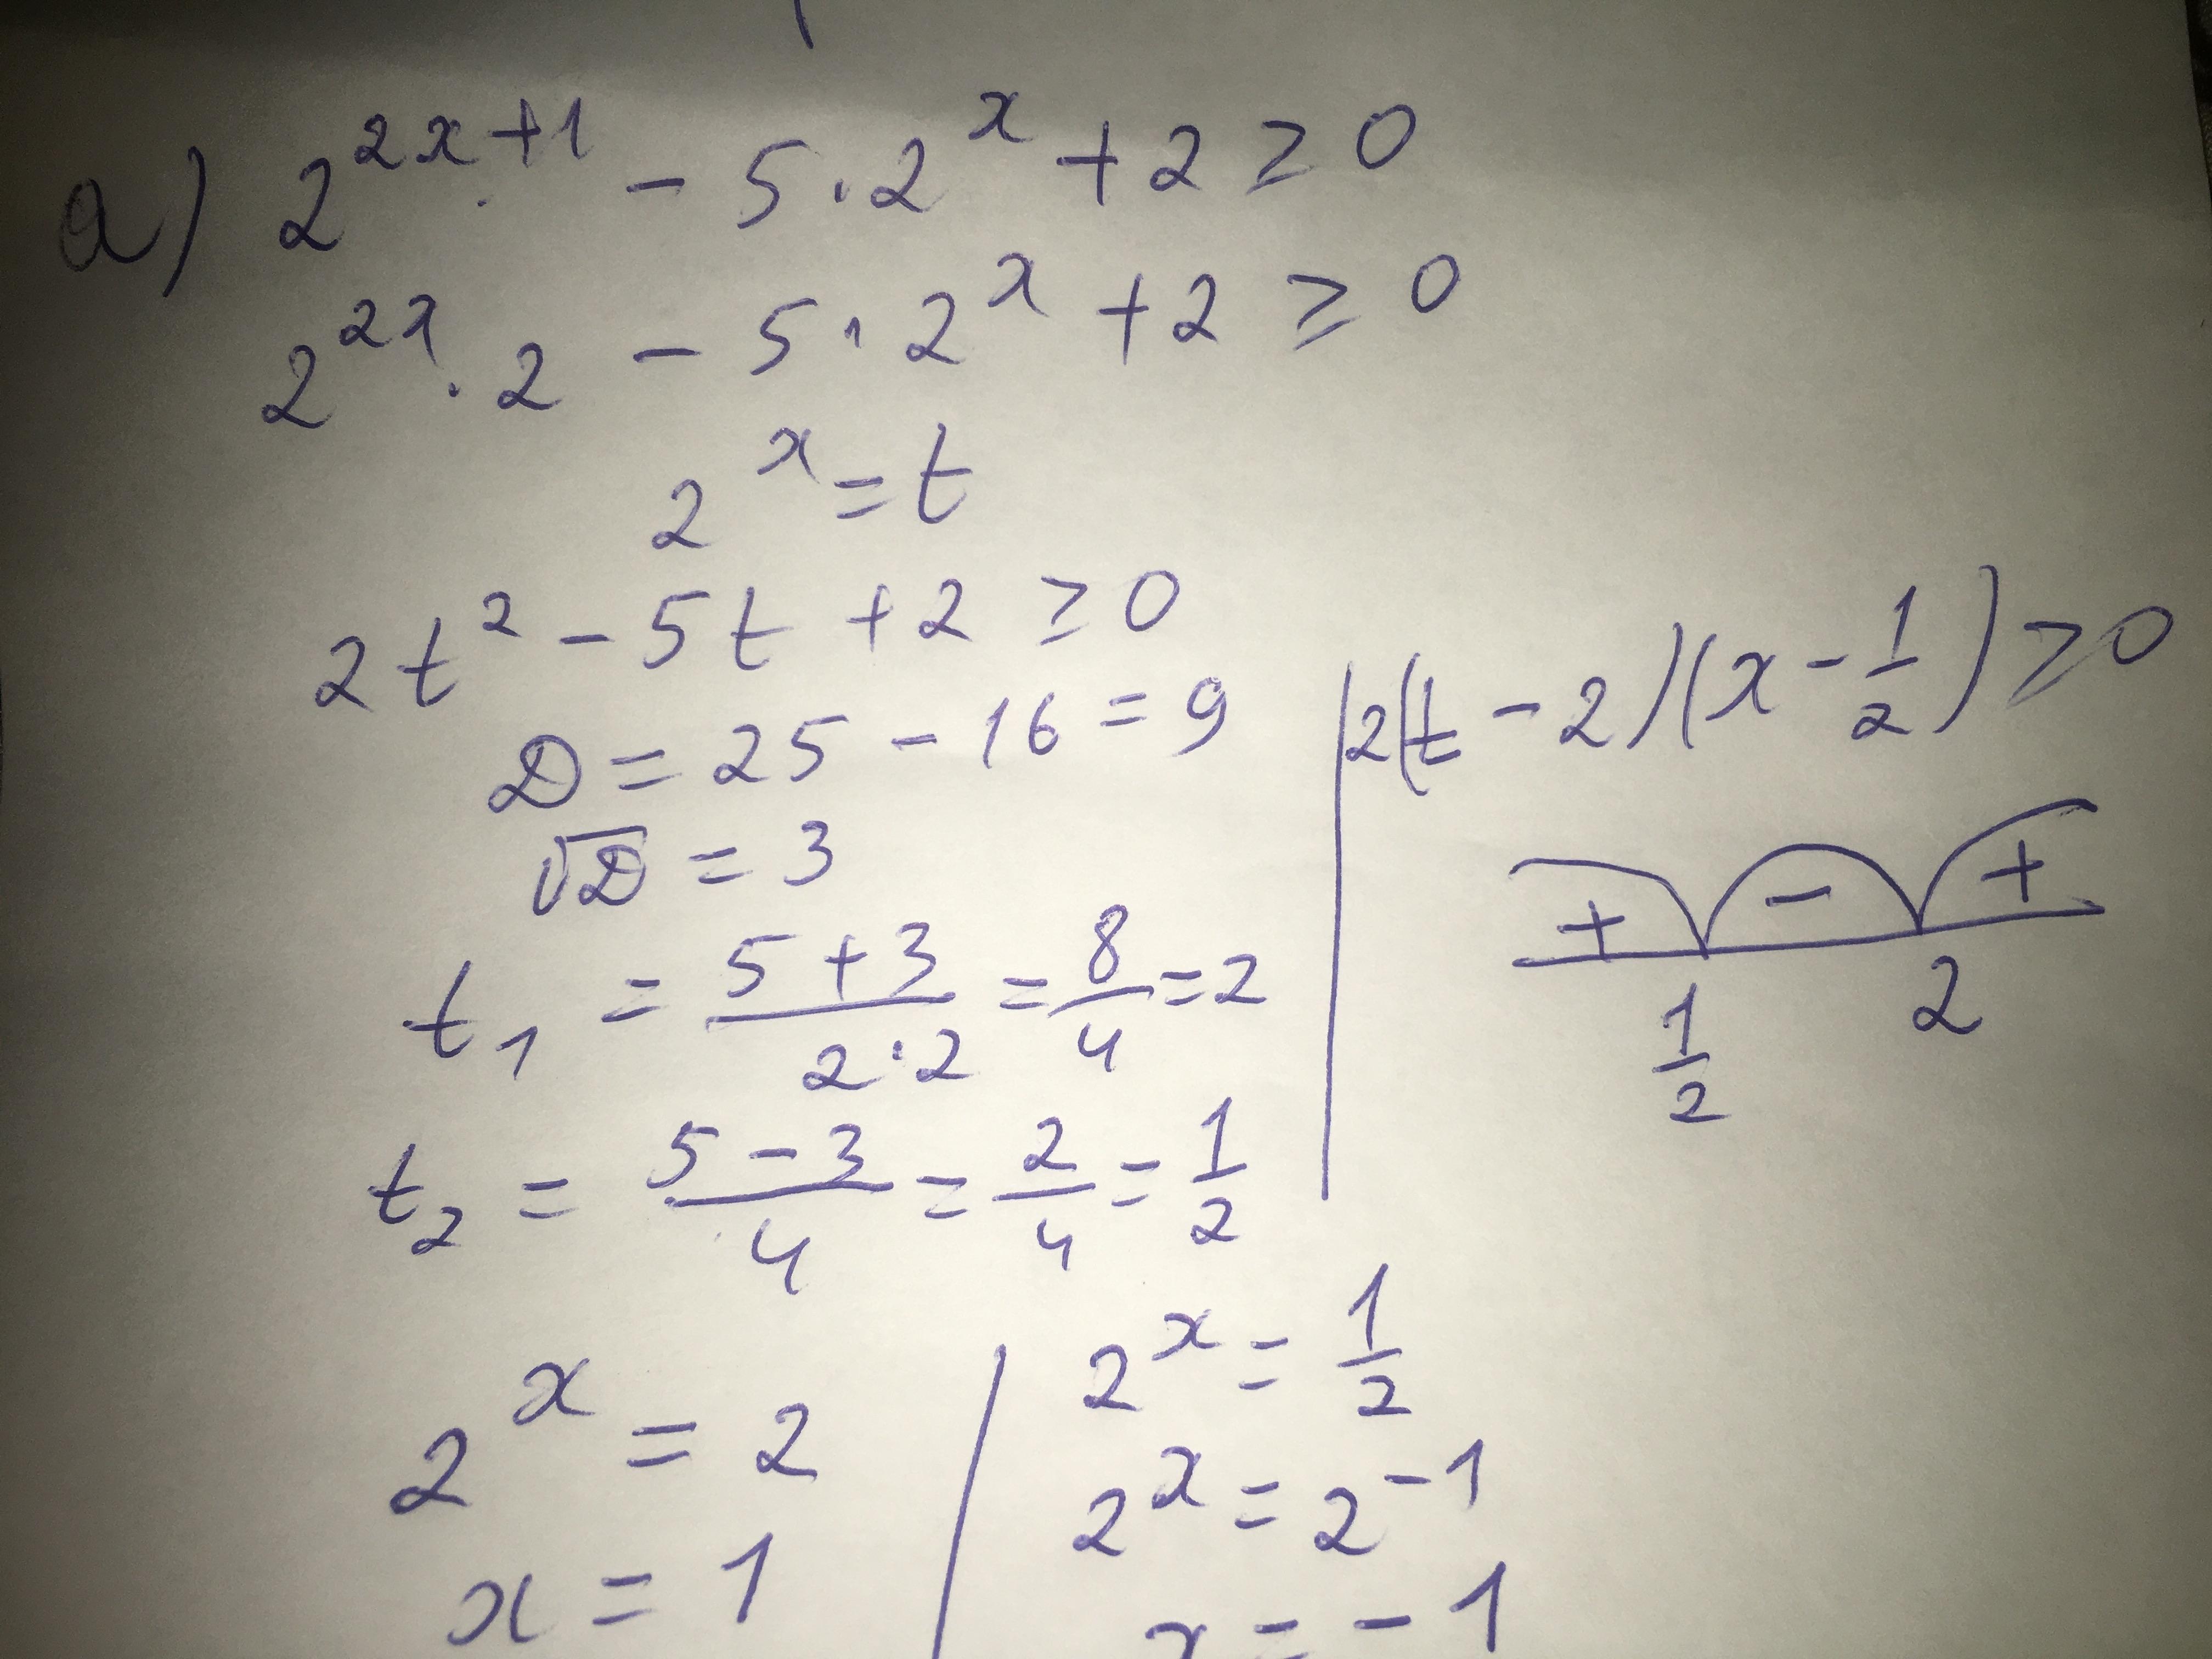 a) 2^{2x+1} - 5·2^x + 2 ≥ 0
2^{2x}·2 - 5·2^x + 2 ≥ 0
2^x = t
2t² - 5t + 2 ≥ 0
D = 25 - 16 = 9
√D = 3
t₁ = (5+3)/(2·2) = 8/4 = 2
t₂ = (5-3)/4 = 2/4 = 1/2
2(t-2)(x-1/2) ≥ 0
+ - +
1/2 2
2^x = 2
x = 1
2^x = 1/2
2^x = 2^{-1}
x = -1